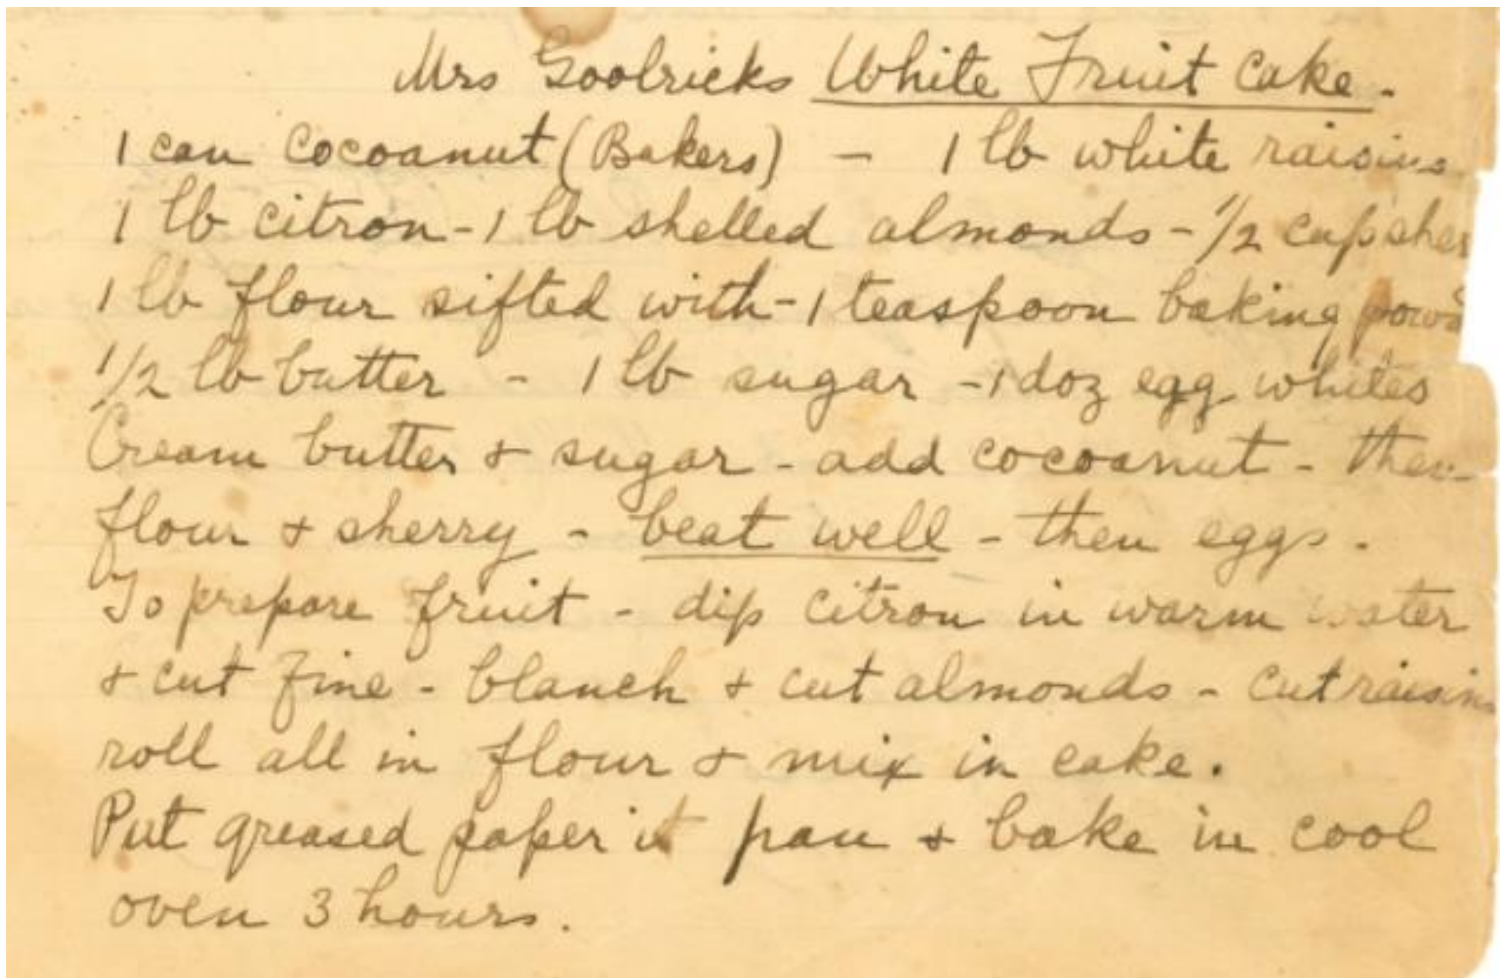 Mrs Goolricks White Fruit Cake.
1 can Cocoanut (Bakers) - 1 lb white raisins
1 lb citron - 1 lb shelled almonds - 1/2 cup sher
1 lb flour sifted with - 1 teaspoon baking powd
1/2 lb butter - 1 lb sugar - 1 doz egg whites
Cream butter & sugar - add cocoanut - then
flour & sherry - beat well - then eggs.
To prepare fruit - dip citron in warm water
& cut fine - blanch & cut almonds - cut raisins
roll all in flour & mix in cake.
Put greased paper in pan & bake in cool
oven 3 hours.